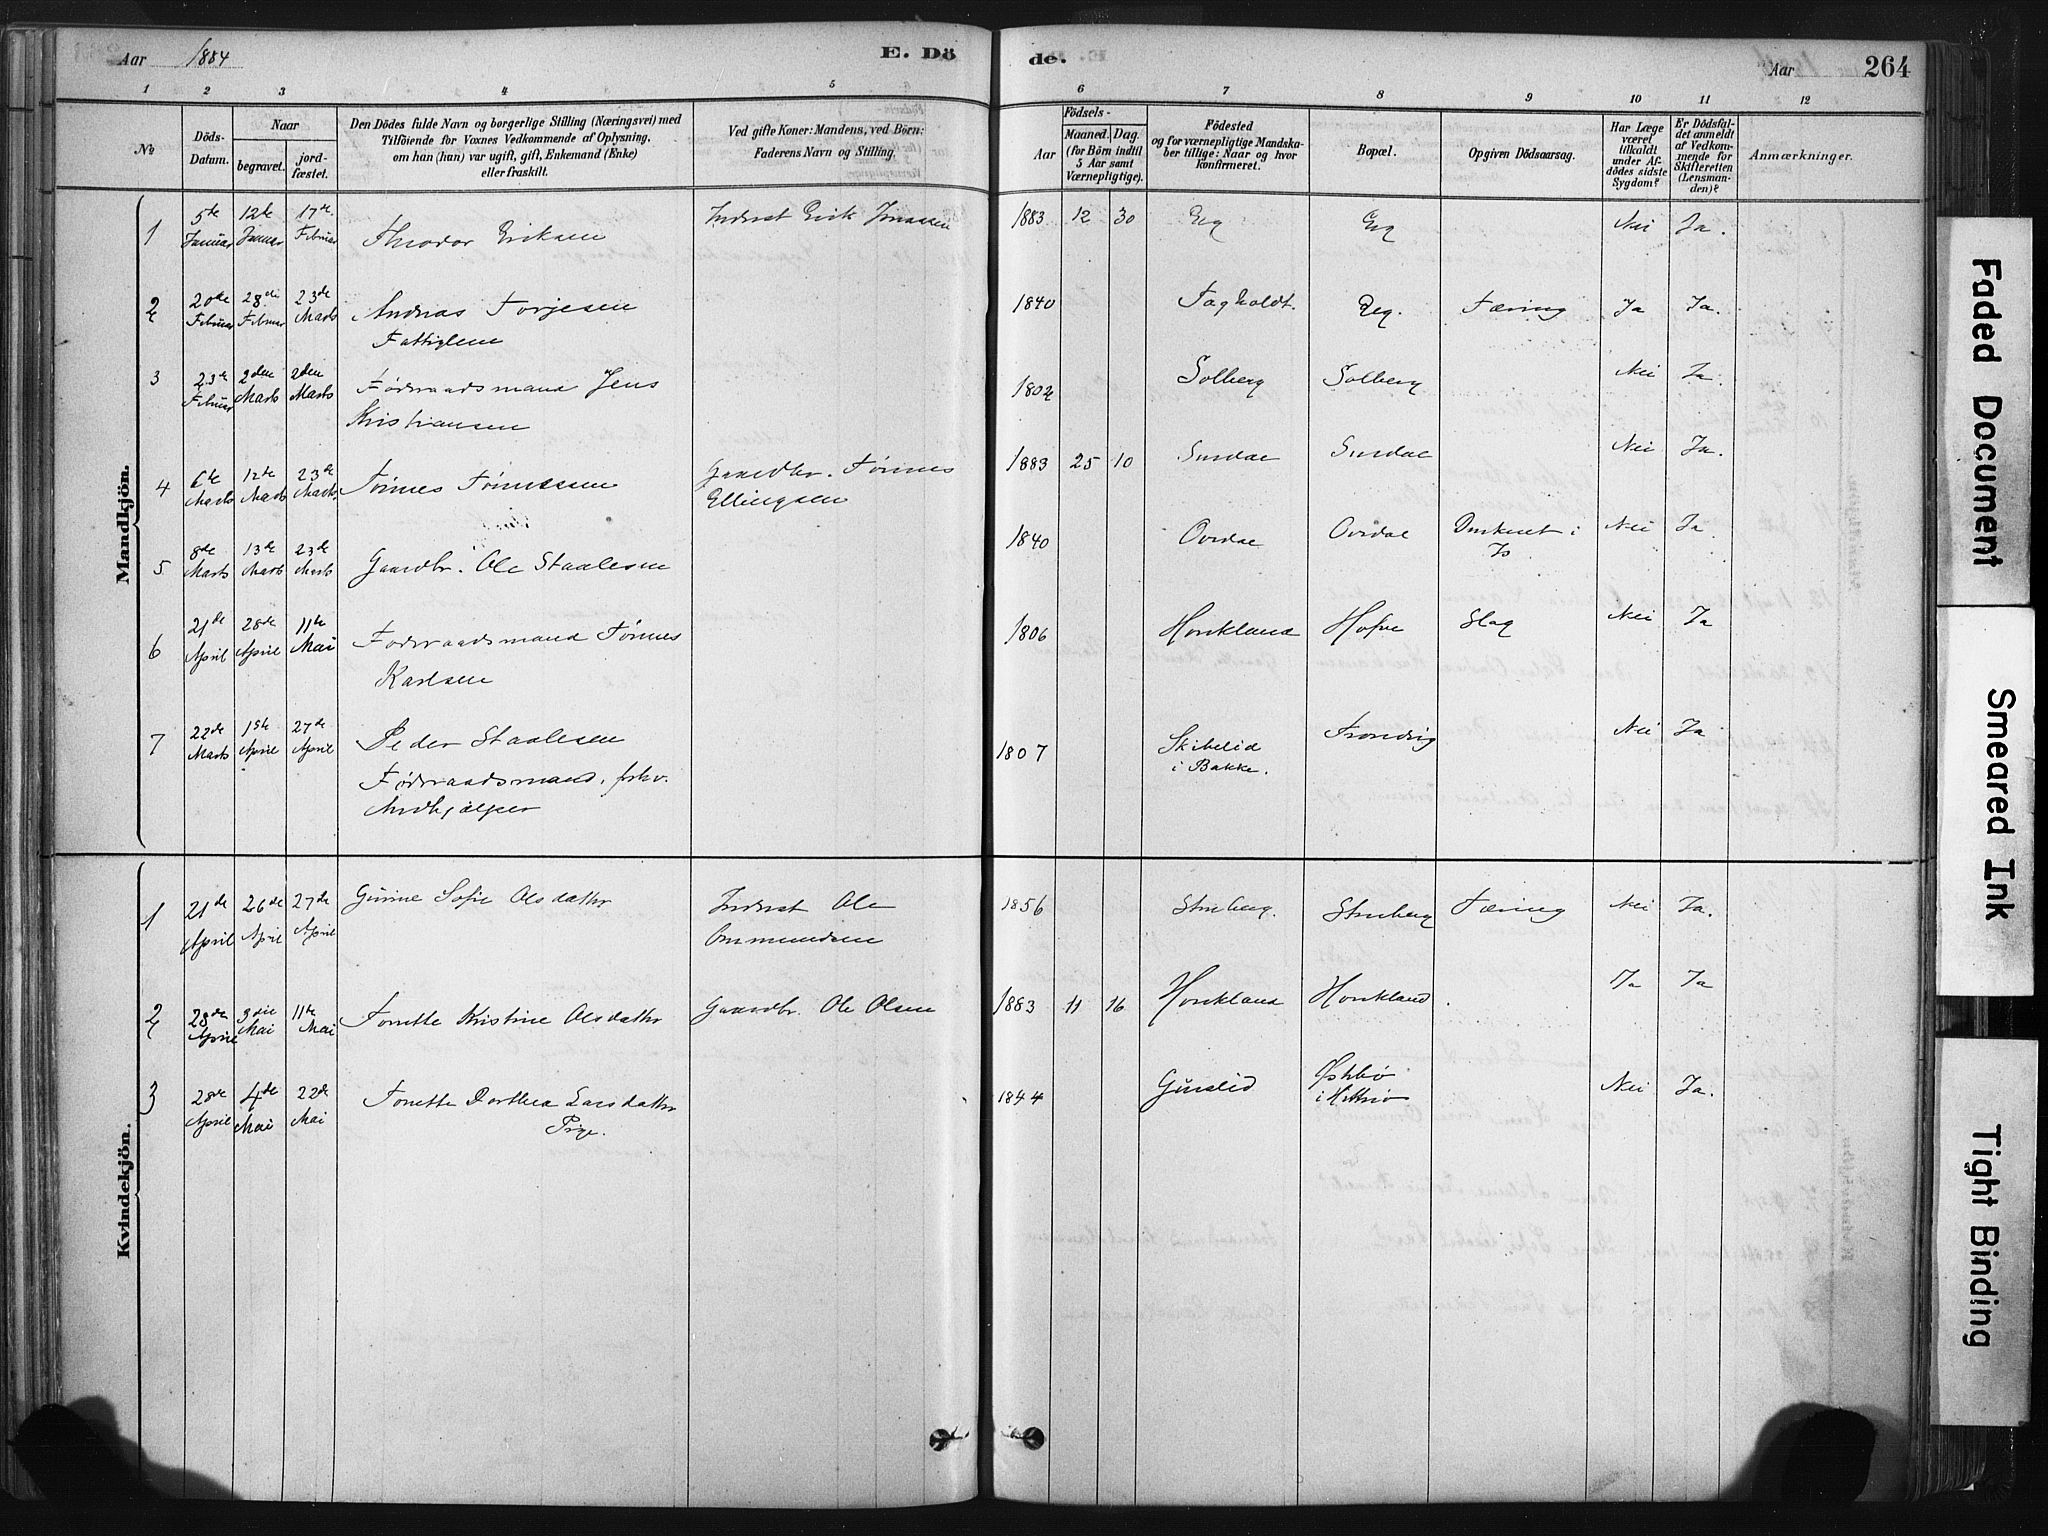 Aar 1884 E. Dö de. Aar 264
1 2 3 4 5 6 7 8 9 10 11 12
No Döds-Datum. Naar begravet. jord-fæstet.
Den Dödes fulde Navn og borgerlige Stilling (Næringsvei) med
Tilföiende for Voxnes Vedkommende af Oplysning,
om han (hun) var ugift, gift, Enkemand (Enke)
eller fraskilt.
Ved gifte Koner: Mandens, ved Börn:
Faderens Navn og Stilling.
Födsels-
Aar Maaned. Dag.
(for Börn indtil
5 Aar samt
Værnepligtige).
Födested
og for værnepligtige Mandska-
ber tillige: Naar og hvor
konfirmeret.
Bopæl.
Opgiven Dödsaarsag.
Har Læge
været
tilkaldt
under Af-
dödes sidste
Sygdom?
Er Dödsfal-
det anmeldt
af Vedkom-
mende for
Skifteretten
(Lensman-
den)?
Anmærkninger.
Mandkjön.
1 5te Januar 12te Januar 17de Februar Theodor Eriksen Inderst Erik 1883 12 30 Eeg Eeg Nei Ja.
2 20de Februar 28de Februar 23de Marts Andreas Torjesen Tæring Ja Ja.
Fattiglem 1840 Eeg.
3 23de Februar 2den Marts 2den Marts Föderaadsmand Jens
Kristiansen 1802 Solberg Solberg Nei Ja.
4 6te Marts 12te Marts 23de Marts. Tönnes Tönnessen Gaardbr. Tönnes
Ellingsen 1883 25 10 Surdal Surdal Nei Ja.
5 8de Marts 13de Marts 23de Marts Gaardbr. Ole Staalesen 1840 Ovedal Ovedal Druknet i
Is Nei Ja.
6 21de April 28de April 11te Mai Föderaadsmand Tönnes
Karlsen 1806 Hovkland Slag Nei Ja
7 22de Marts 1ste April 27de April Peder Staalesen
Föderaadsmand, forhv.
Medhjælper 1807 Skibelid
i Bakke. Nei Ja
Kvindekjön.
1 21de April 26de April 27de April Gurine Sofie Olsdatter Inderst Ole
Ommundsen 1856 Struberg. Struberg Tæring Nei Ja.
2 28de April 3die Mai 11te Mai Tonette Kristine Olsdatter Gaardbr. Ole Olsen 1883 11 16 Hovkland Hovkland. Ja Ja
3 28de April 4de Mai 22de Mai Tonette Dorthea Larsdatter
Pige. 1844 Guslid i Hitterö Nei Ja.
Faded Document
Smeared Ink
Tight Binding